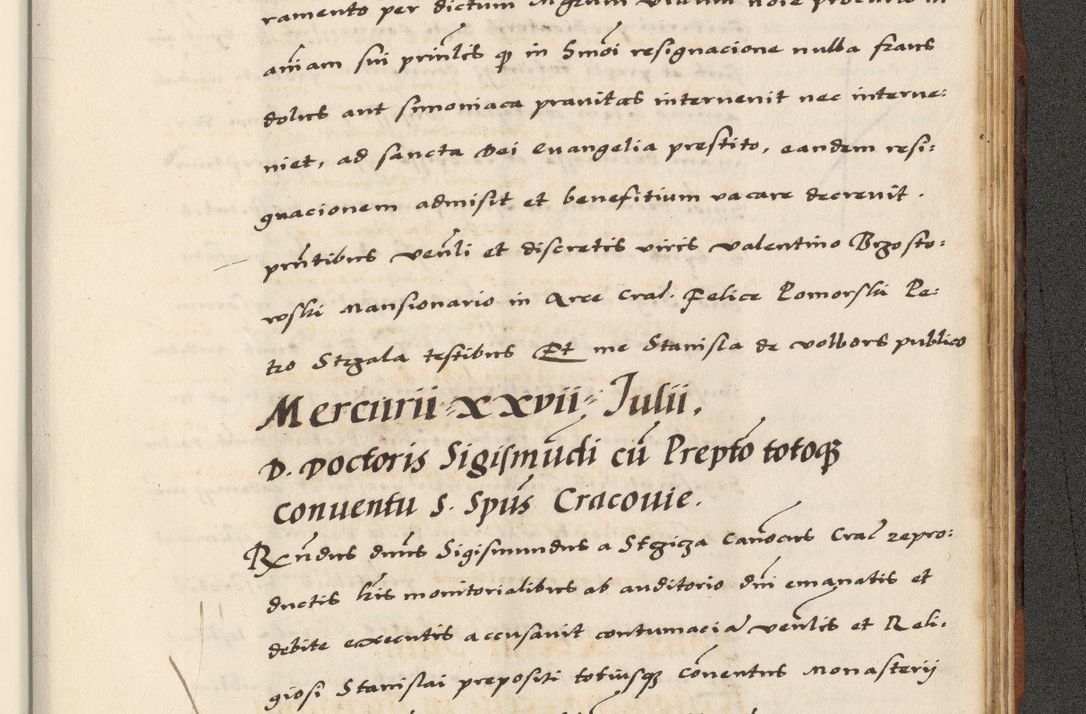 ramento per dictum
aīam sui prinčlis ꝙ in Smōi resignacione nulla fraus
dolus aut simoniaca pravitas intervenit nec interve:
niet, ad sancta Dei Evangelia prestito, eandem resi:
gnacionem admisit et benefitium vacare decrevit.
prn̄tibus ven̄li et discretis viris Valentino Brzosto:
wski Mansionario in Arce Crac̄. Felice Pomorski Pe:
tro Strzala testibus Et me Stanisla de Volbors publico
Mercurii xxvii Julii.
D. Doctoris Sigismūdi cū Prepto totoqȝ
conventu S. Spūs Cracovie.
Rn̄dus dnūs Sigismundus a Stezicza Canōcus Crac̄ repro:
ductis l̄ris monitorialibus ab auditorio dn̄i emanatis et
debite executis accusavit contumaciā ven̄lis et Reli:
giosi Stanislai prepositi totiusqȝ Cōventus Monasterij